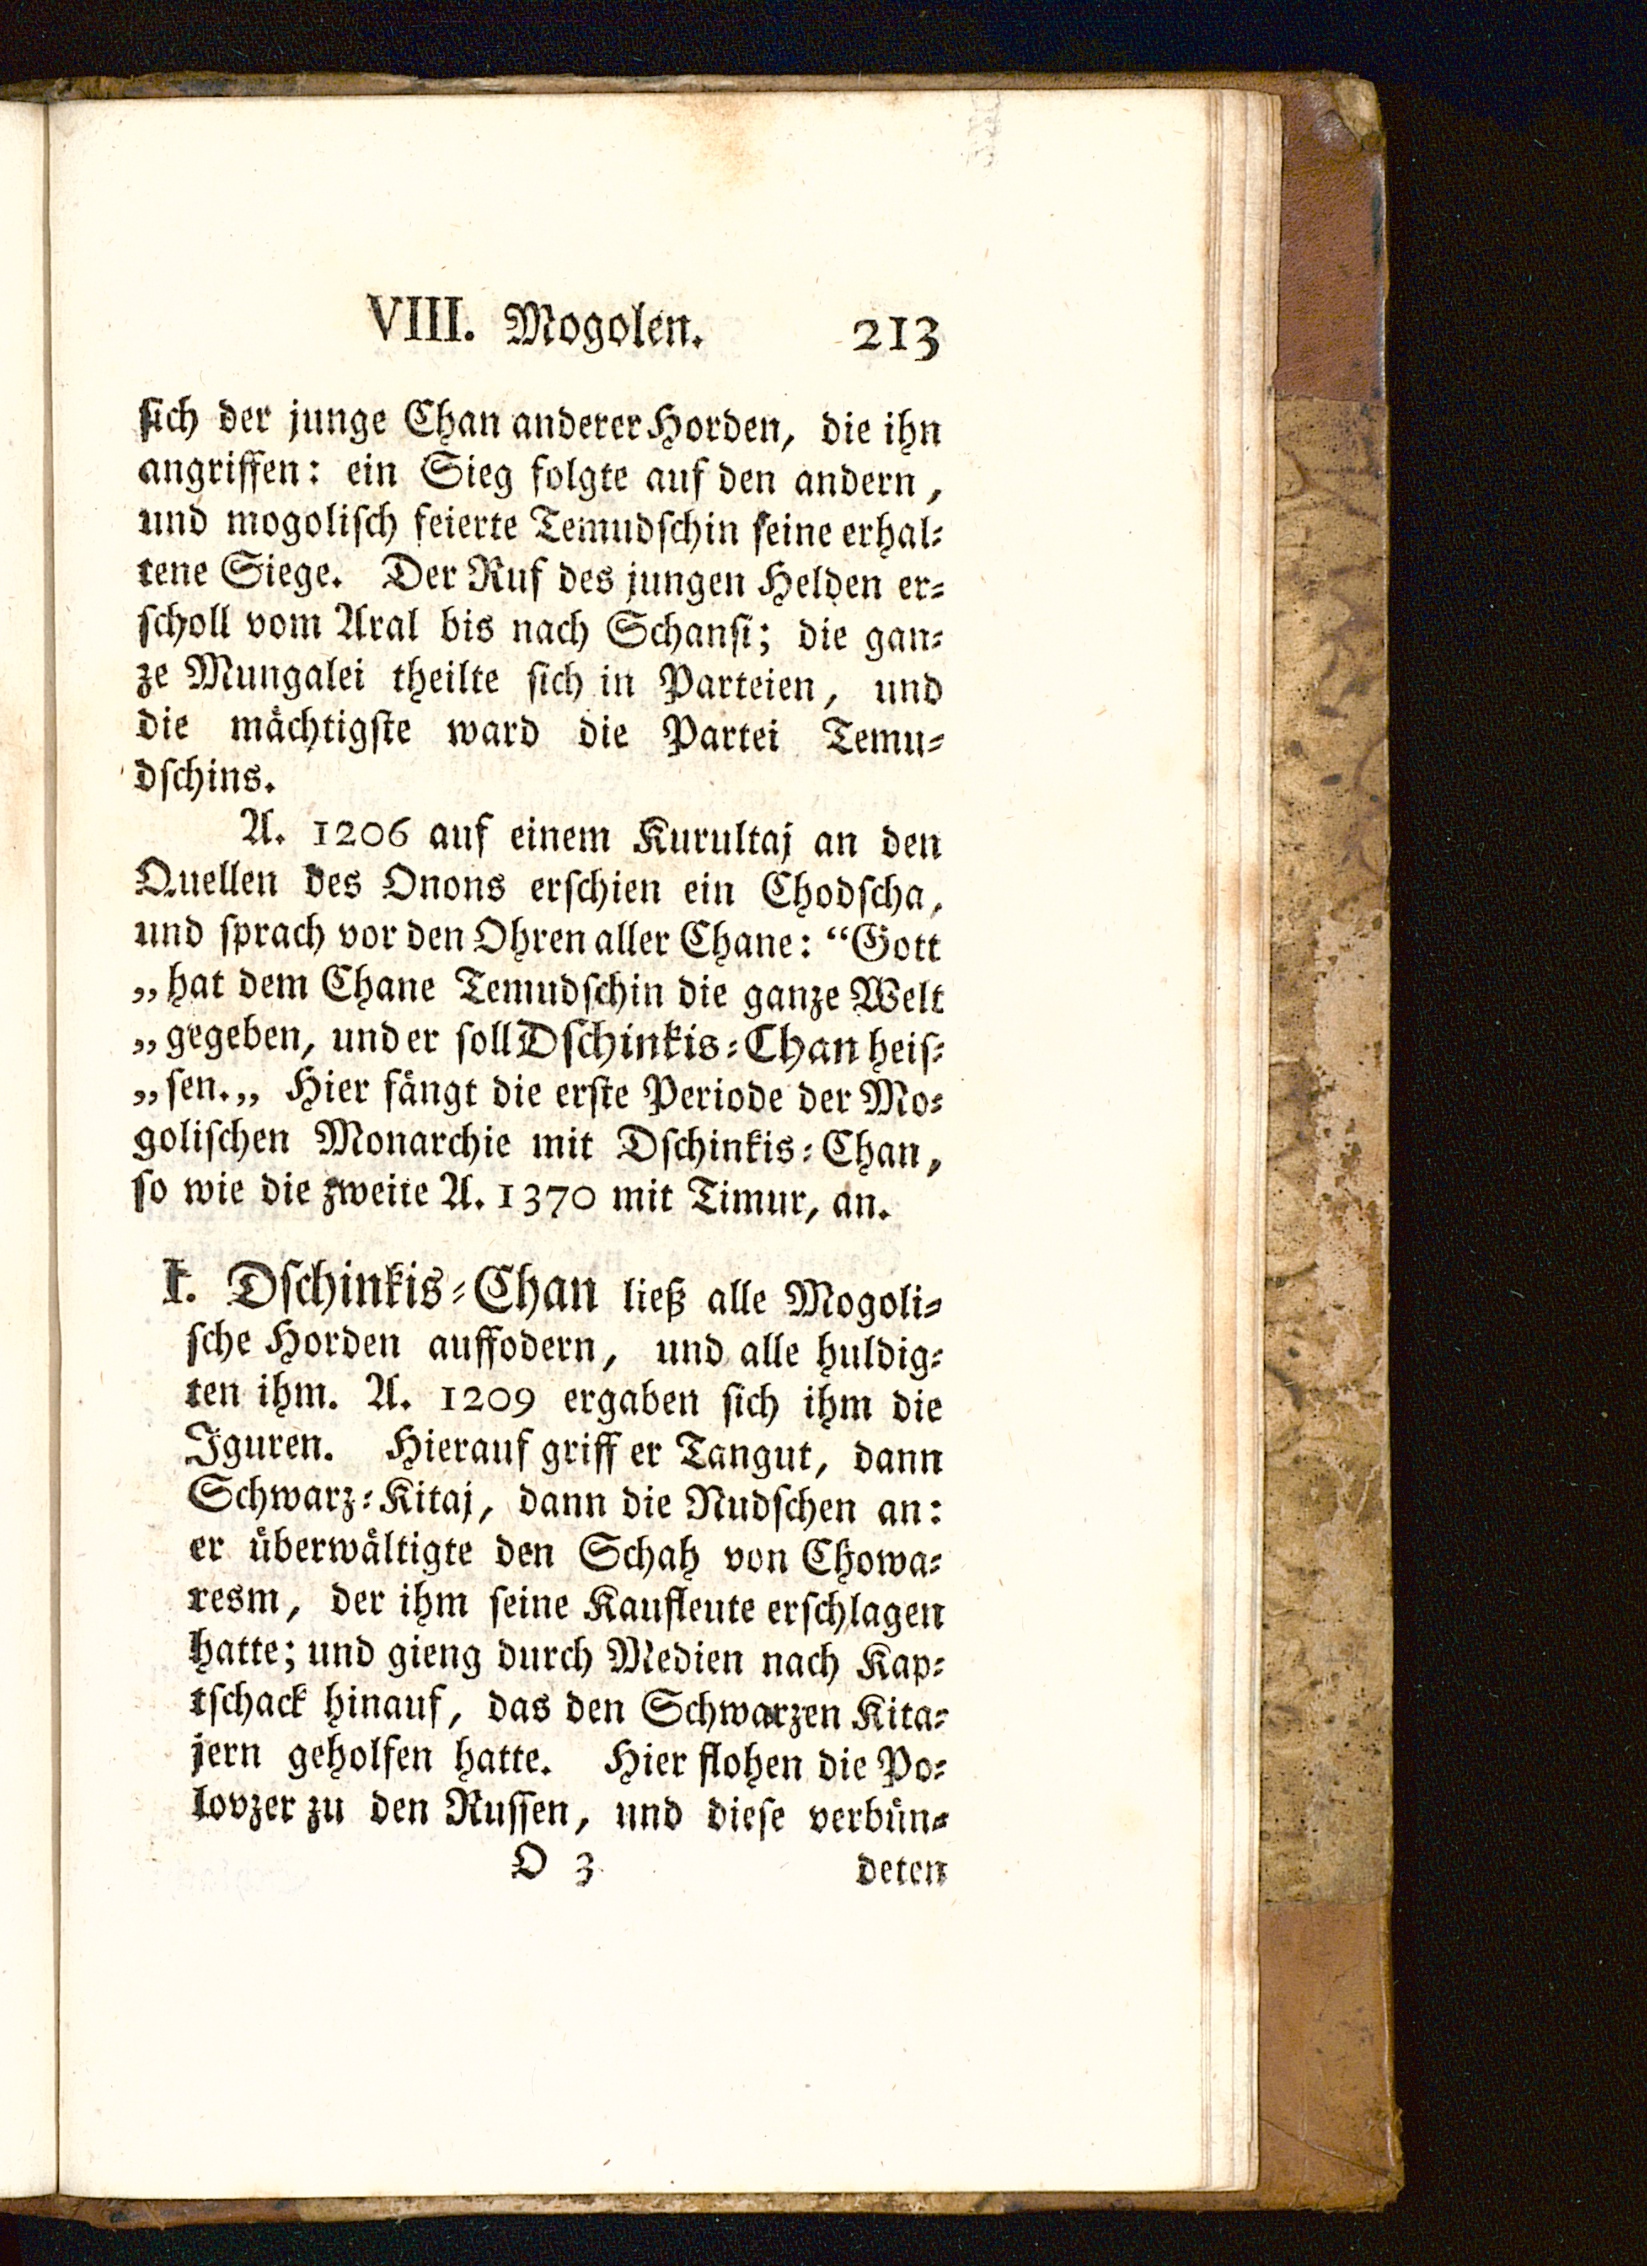 VIII. Mogolen. 213
ſich der junge Chan anderer Horden, die ihn
angriffen: ein Sieg folgte auf den andern,
und mogoliſch feierte Temudſchin ſeine erhal⸗
tene Siege. Der Ruf des jungen Helden er⸗
ſcholl vom Aral bis nach Schanſi; die gan⸗
ze Mungalei theilte ſich in Parteien, und
die mächtigſte ward die Partei Temu⸗
dſchins.
A. 1206 auf einem Kurultaj an den
Quellen des Onons erſchien ein Chodſcha,
und ſprach vor den Ohren aller Chane: “Gott
„hat dem Chane Temudſchin die ganze Welt
„gegeben, und er ſoll Dſchinkis⸗Chan heiſ⸗
„ſen.„ Hier fängt die erſte Periode der Mo⸗
goliſchen Monarchie mit Dſchinkis⸗Chan,
ſo wie die zweite A. 1370 mit Timur, an.
I. Dſchinkis⸗Chan ließ alle Mogoli⸗
ſche Horden auffodern, und alle huldig⸗
ten ihm. A. 1209 ergaben ſich ihm die
Iguren. Hierauf griff er Tangut, dann
Schwarz⸗Kitaj, dann die Nudſchen an:
er überwältigte den Schah von Chowa⸗
resm, der ihm ſeine Kaufleute erſchlagen
hatte; und gieng durch Medien nach Kap⸗
tſchack hinauf, das den Schwarzen Kita⸗
jern geholfen hatte. Hier flohen die Po⸗
lovzer zu den Ruſſen, und dieſe verbün⸗
O 3 deten